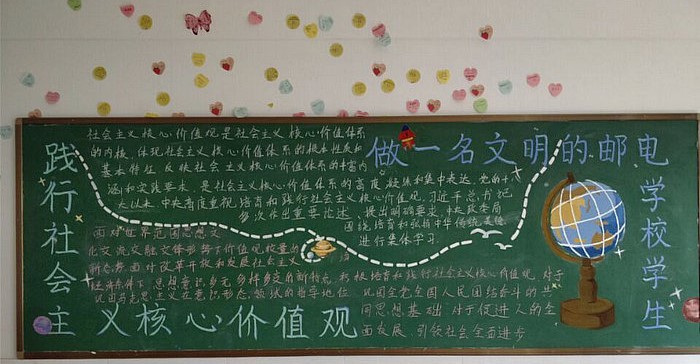 践行社会主义核心价值观
做一名文明的邮电学校学生
社会主义核心价值观是社会主义核心价值体系
的内核，体现社会主义核心价值体系的根本性质和
基本特征，反映社会主义核心价值体系的丰富内
涵和实践要求，是社会主义核心价值体系的高度凝练和集中表达。党的十
八大以来，中央高度重视培育和践行社会主义核心价值观。习近平总书记
多次作出重要论述、提出明确要求，中央政治局
围绕培育和弘扬中华传统美德
进行集体学习。
面对世界范围思想文
化交流交融交锋形势下价值观较量的
新态势，面对改革开放和发展社会主义
经济条件下思想意识多元多样多变的新特点，积极培育和践行社会主义核心价值观，对于
巩固马克思主义在意识形态领域的指导地位
巩固全党全国人民团结奋斗的共
同思想基础，对于促进人的全
面发展、引领社会全面进步